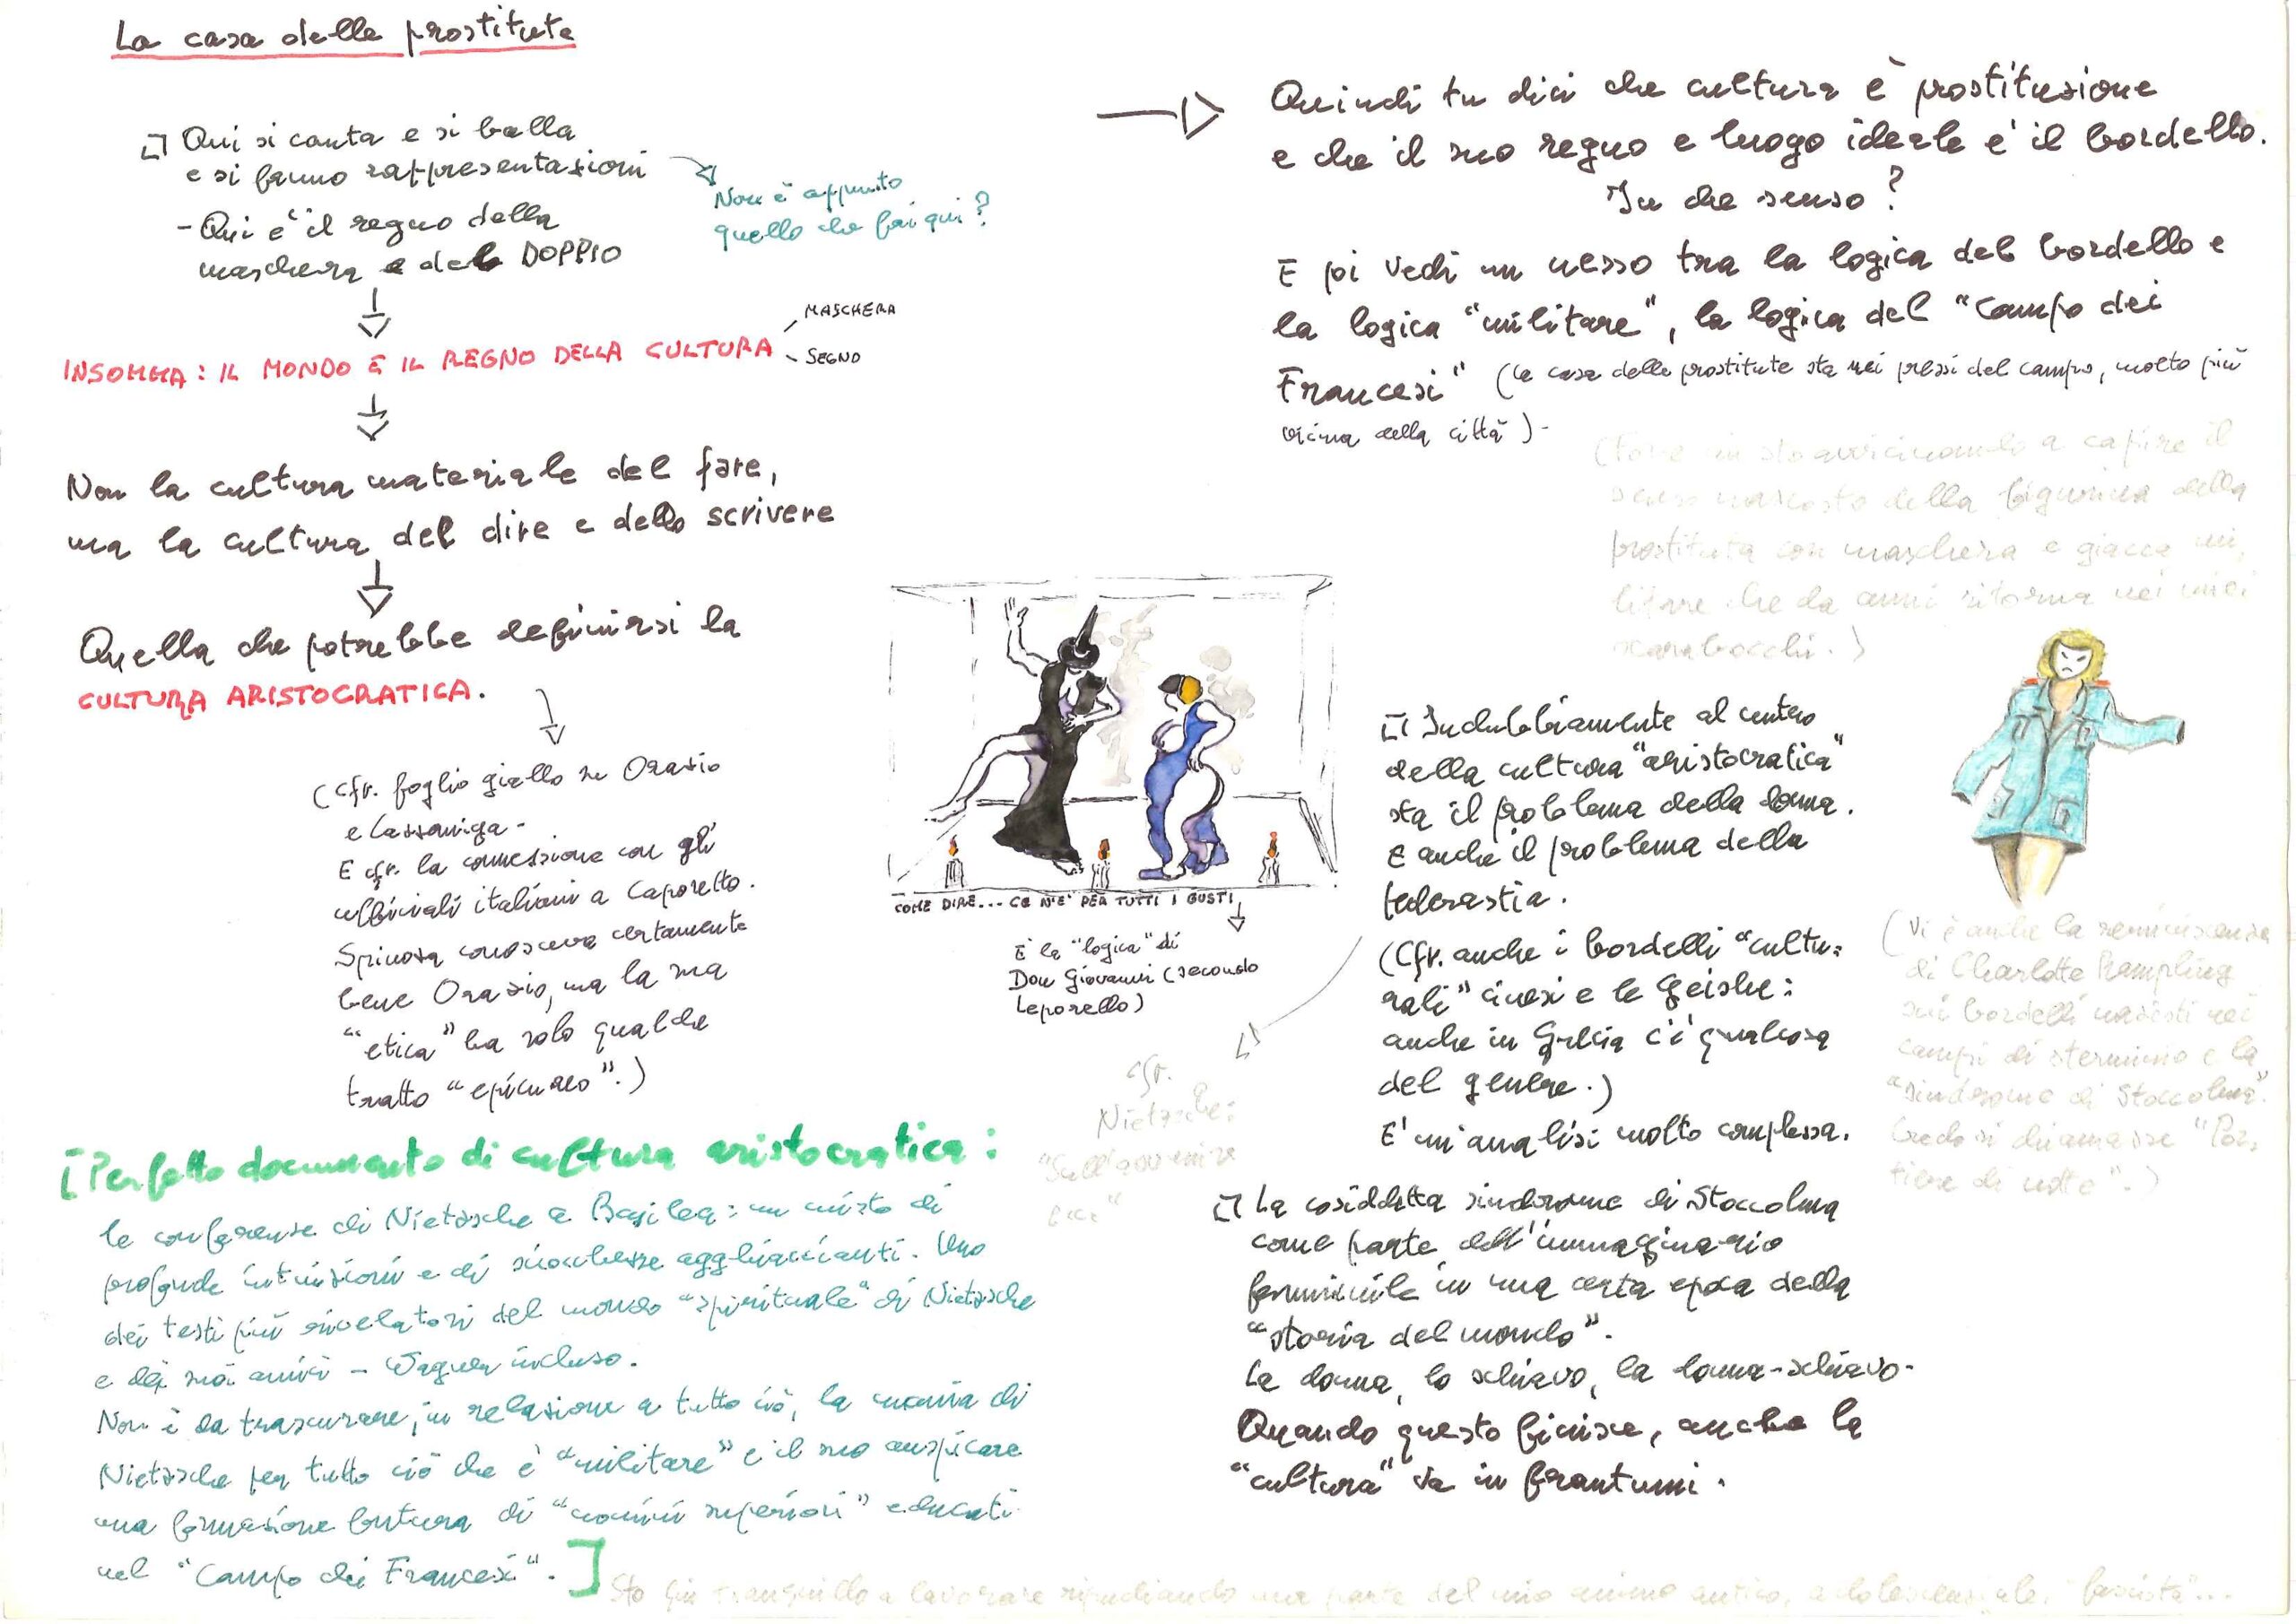 La casa delle prostitute
Qui si canta e si balla
e si fanno rappresentazioni
Non è appunto
quello che fai qui?
- Qui è il regno della
maschera e del DOPPIO
INSOMMA: IL MONDO E IL REGNO DELLA CULTURA
MASCHERA
SEGNO
Non la cultura materiale del fare,
ma la cultura del dire e dello scrivere
Quella che potrebbe definirsi la
CULTURA ARISTOCRATICA.
(Cfr. foglio giallo su Orazio
e Cassaniga.
E cfr. la connessione con gli
ufficiali italiani a Caporetto.
Spinoza conosceva certamente
bene Orazio, ma la sua
"etica" ha solo qualche
tratto "epicureo".)
[Perfetto documento di cultura aristocratica:
le conferenze di Nietzsche a Basilea: un misto di
profonde intuizioni e di sciocchezze agghiaccianti. Uno
dei testi più rivelatori del mondo "spirituale" di Nietzsche
e dei suoi amici - Wagner incluso.
Non è da trascurare, in relazione a tutto ciò, la mania di
Nietzsche per tutto ciò che è "militare" e il suo auspicare
una formazione futura di "uomini superiori" educati
nel "Campo dei Francesi".]
Quindi tu dici che cultura è prostituzione
e che il suo regno e luogo ideale è il bordello.
In che senso?
E poi vedi un nesso tra la logica del bordello e
la logica "militare", la logica del "Campo dei
Francesi" (la casa delle prostitute sta nei pressi del campo, molto più
vicina della città).
(Forse mi sto avvicinando a capire il
senso nascosto della figurina della
prostituta con maschera e giacca mi-
litare che da anni ritorna nei miei
scarabocchi.)
COME DIRE... CE N'E' PER TUTTI I GUSTI
È la "logica" di
Don Giovanni (secondo
Leporello)
Indubbiamente al centro
della cultura "aristocratica"
sta il problema della donna.
E anche il problema della
pederastia.
(Cfr. anche i bordelli "cultu=
rali" cinesi e le Geishe:
anche in Grecia c'è qualcosa
del genere.)
E' un'analisi molto complessa.
cfr.
Nietzsche:
"Sull'avvenire
ecc"
(Vi è anche la reminiscenza
di Charlotte Rampling
sui bordelli nazisti nei
campi di sterminio e la
"sindrome di Stoccolma".
Credo si chiamasse "Por-
tiere di notte".)
La cosiddetta sindrome di Stoccolma
come parte dell'immaginario
femminile in una certa epoca della
"storia del mondo".
La donna, lo schiavo, la donna-schiavo.
Quando questo finisce, anche la
"cultura" va in frantumi.
Sto qui tranquillo a lavorare ripudiando una parte del mio animo antico, adolescenziale, "fascista"...